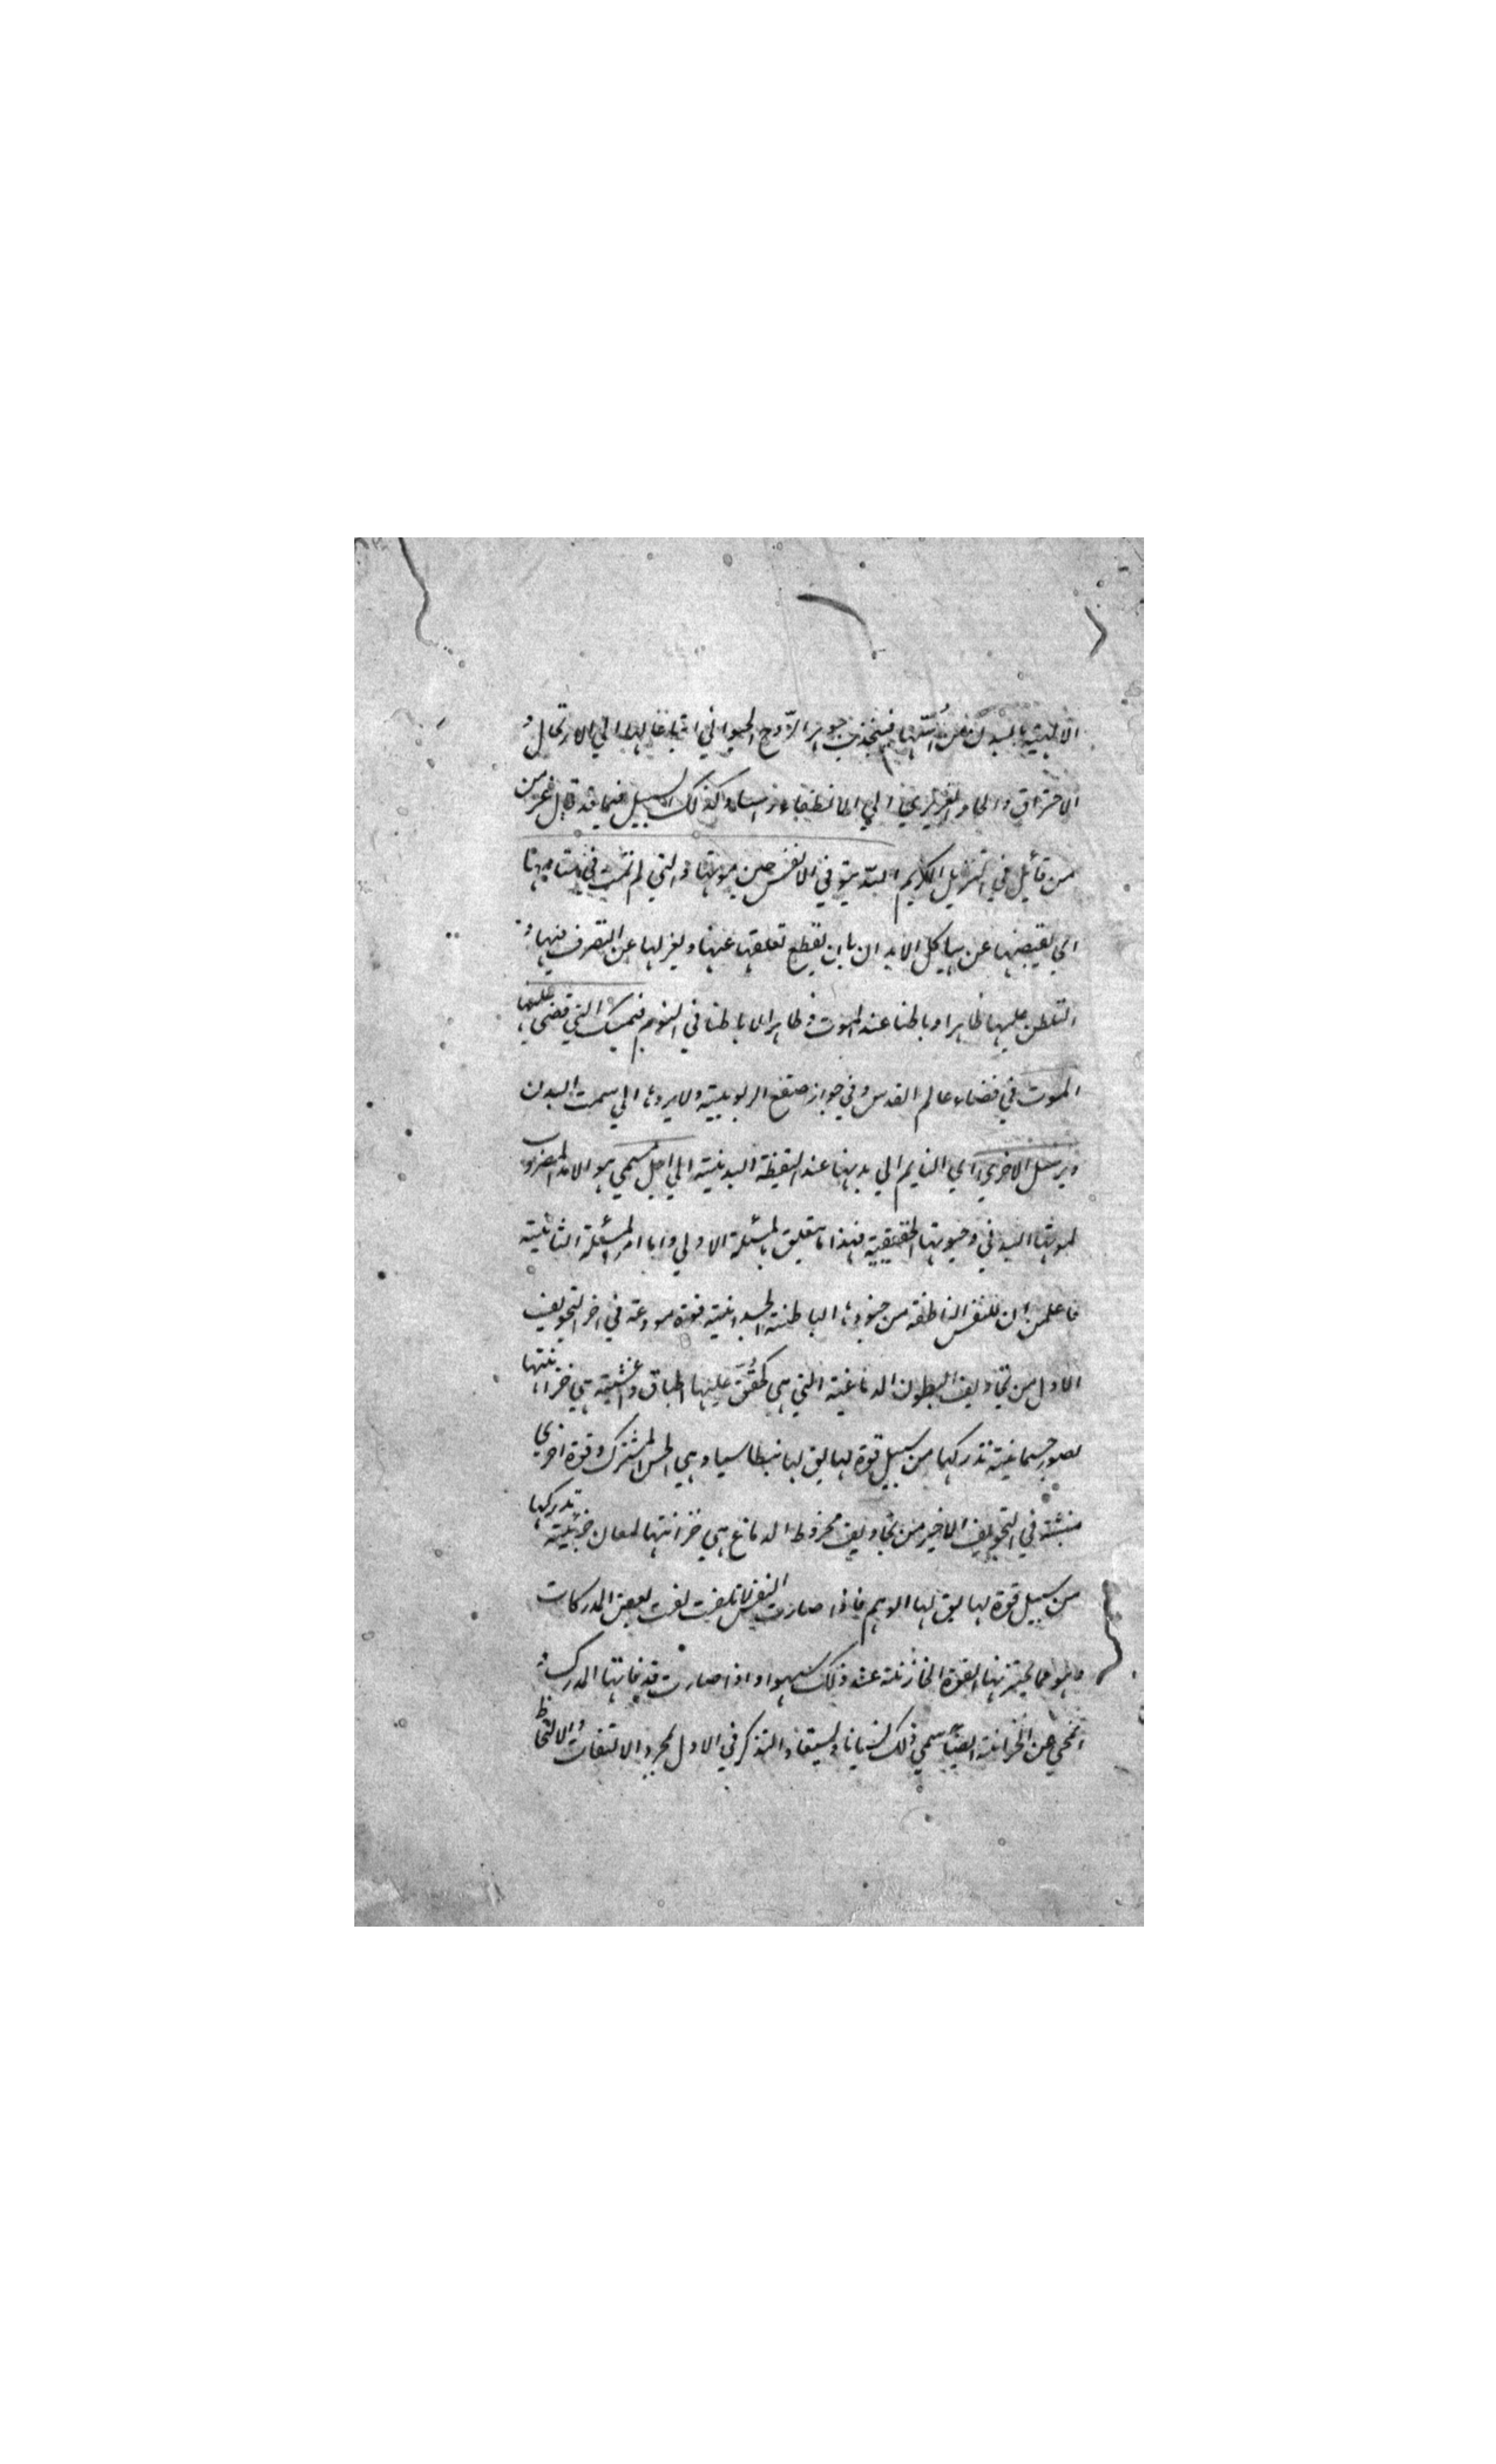 بالبدن عن فينجذب جوهر الرّوح الحيواني الي الارتحال و
الاحتراق والحار الغريزي الي الانطفاء وكذلك السبيل فيما قد قال عز من
من قائل في التنزيل الكريم الله يتوفي الانفس حين موتها والتي لم تمت في منامها
اي يقبضها عن هياكل الابدان بان يقطع تعلقها عنها ويعزلها عن التصرف فيها و
التسلطن عليها ظاهرا وباطنا عند الموت وظاهرا لا باطنا في النوم فيمسك التي قضي عليها
الموت في فضاء عالم القدس وفي جوار صقع الربوبية ولا يردها الي سمت البدن
ويرسل الاخري اي النايم الي بدنها عند اليقظة البدنية الي اجل مسمي هو الامد المضروب
لموتها البدني وحيوتها الحقيقية فهذا ما يتعلق بالمسئلة الاولي واما امر المسئلة الثانية
فاعلمن ان للنفس الناطقة من جنودها الباطنة الجسدانية قوة مودعة في اخر التجويف
الاول من تجاويف البطون الدماغية التي هي كحُقّ عليها اطباق واغشية هي خزانتها
لصور جسمانية تدركها من سبيل قوة لها يق لها بنطاسيا وهي الحس المشترك وقوة اخري
منبثة في التجويف الاخير من تجاويف مخروط الدماغ هي خزانتها لمعان جزئية تدركها
من سبيل قوة لها يق لها الوهم فاذا صارت النفس لا تلتفت لفت بعض المدركات
وهو مما يختزنها القوة الخازنة عند ذلك سهوا واذا صارت قد فاتها المدرك و
انمحي عن الخزانة ايضا سمي ذلك نسيانا والتذكر في الاول بمجرد الالتفات والالتحاظ